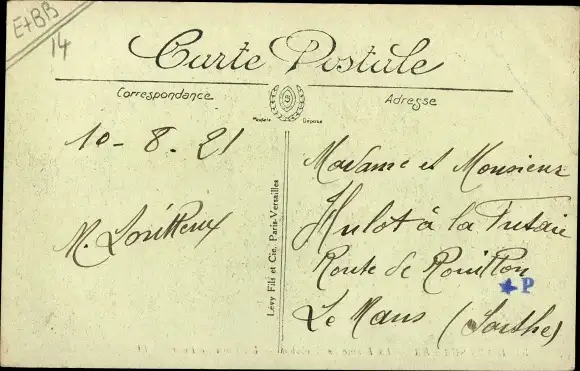 E+BB
14
Carte Postale
Correspondance
Adresse
Modèle Déposé
10-8.21
Madame et Monsieur
Hulot à la Futaie
Route de Rouillon
Le Mans (Sarthe)
M.
Lévy Fils et Cie, Paris-Versailles
P